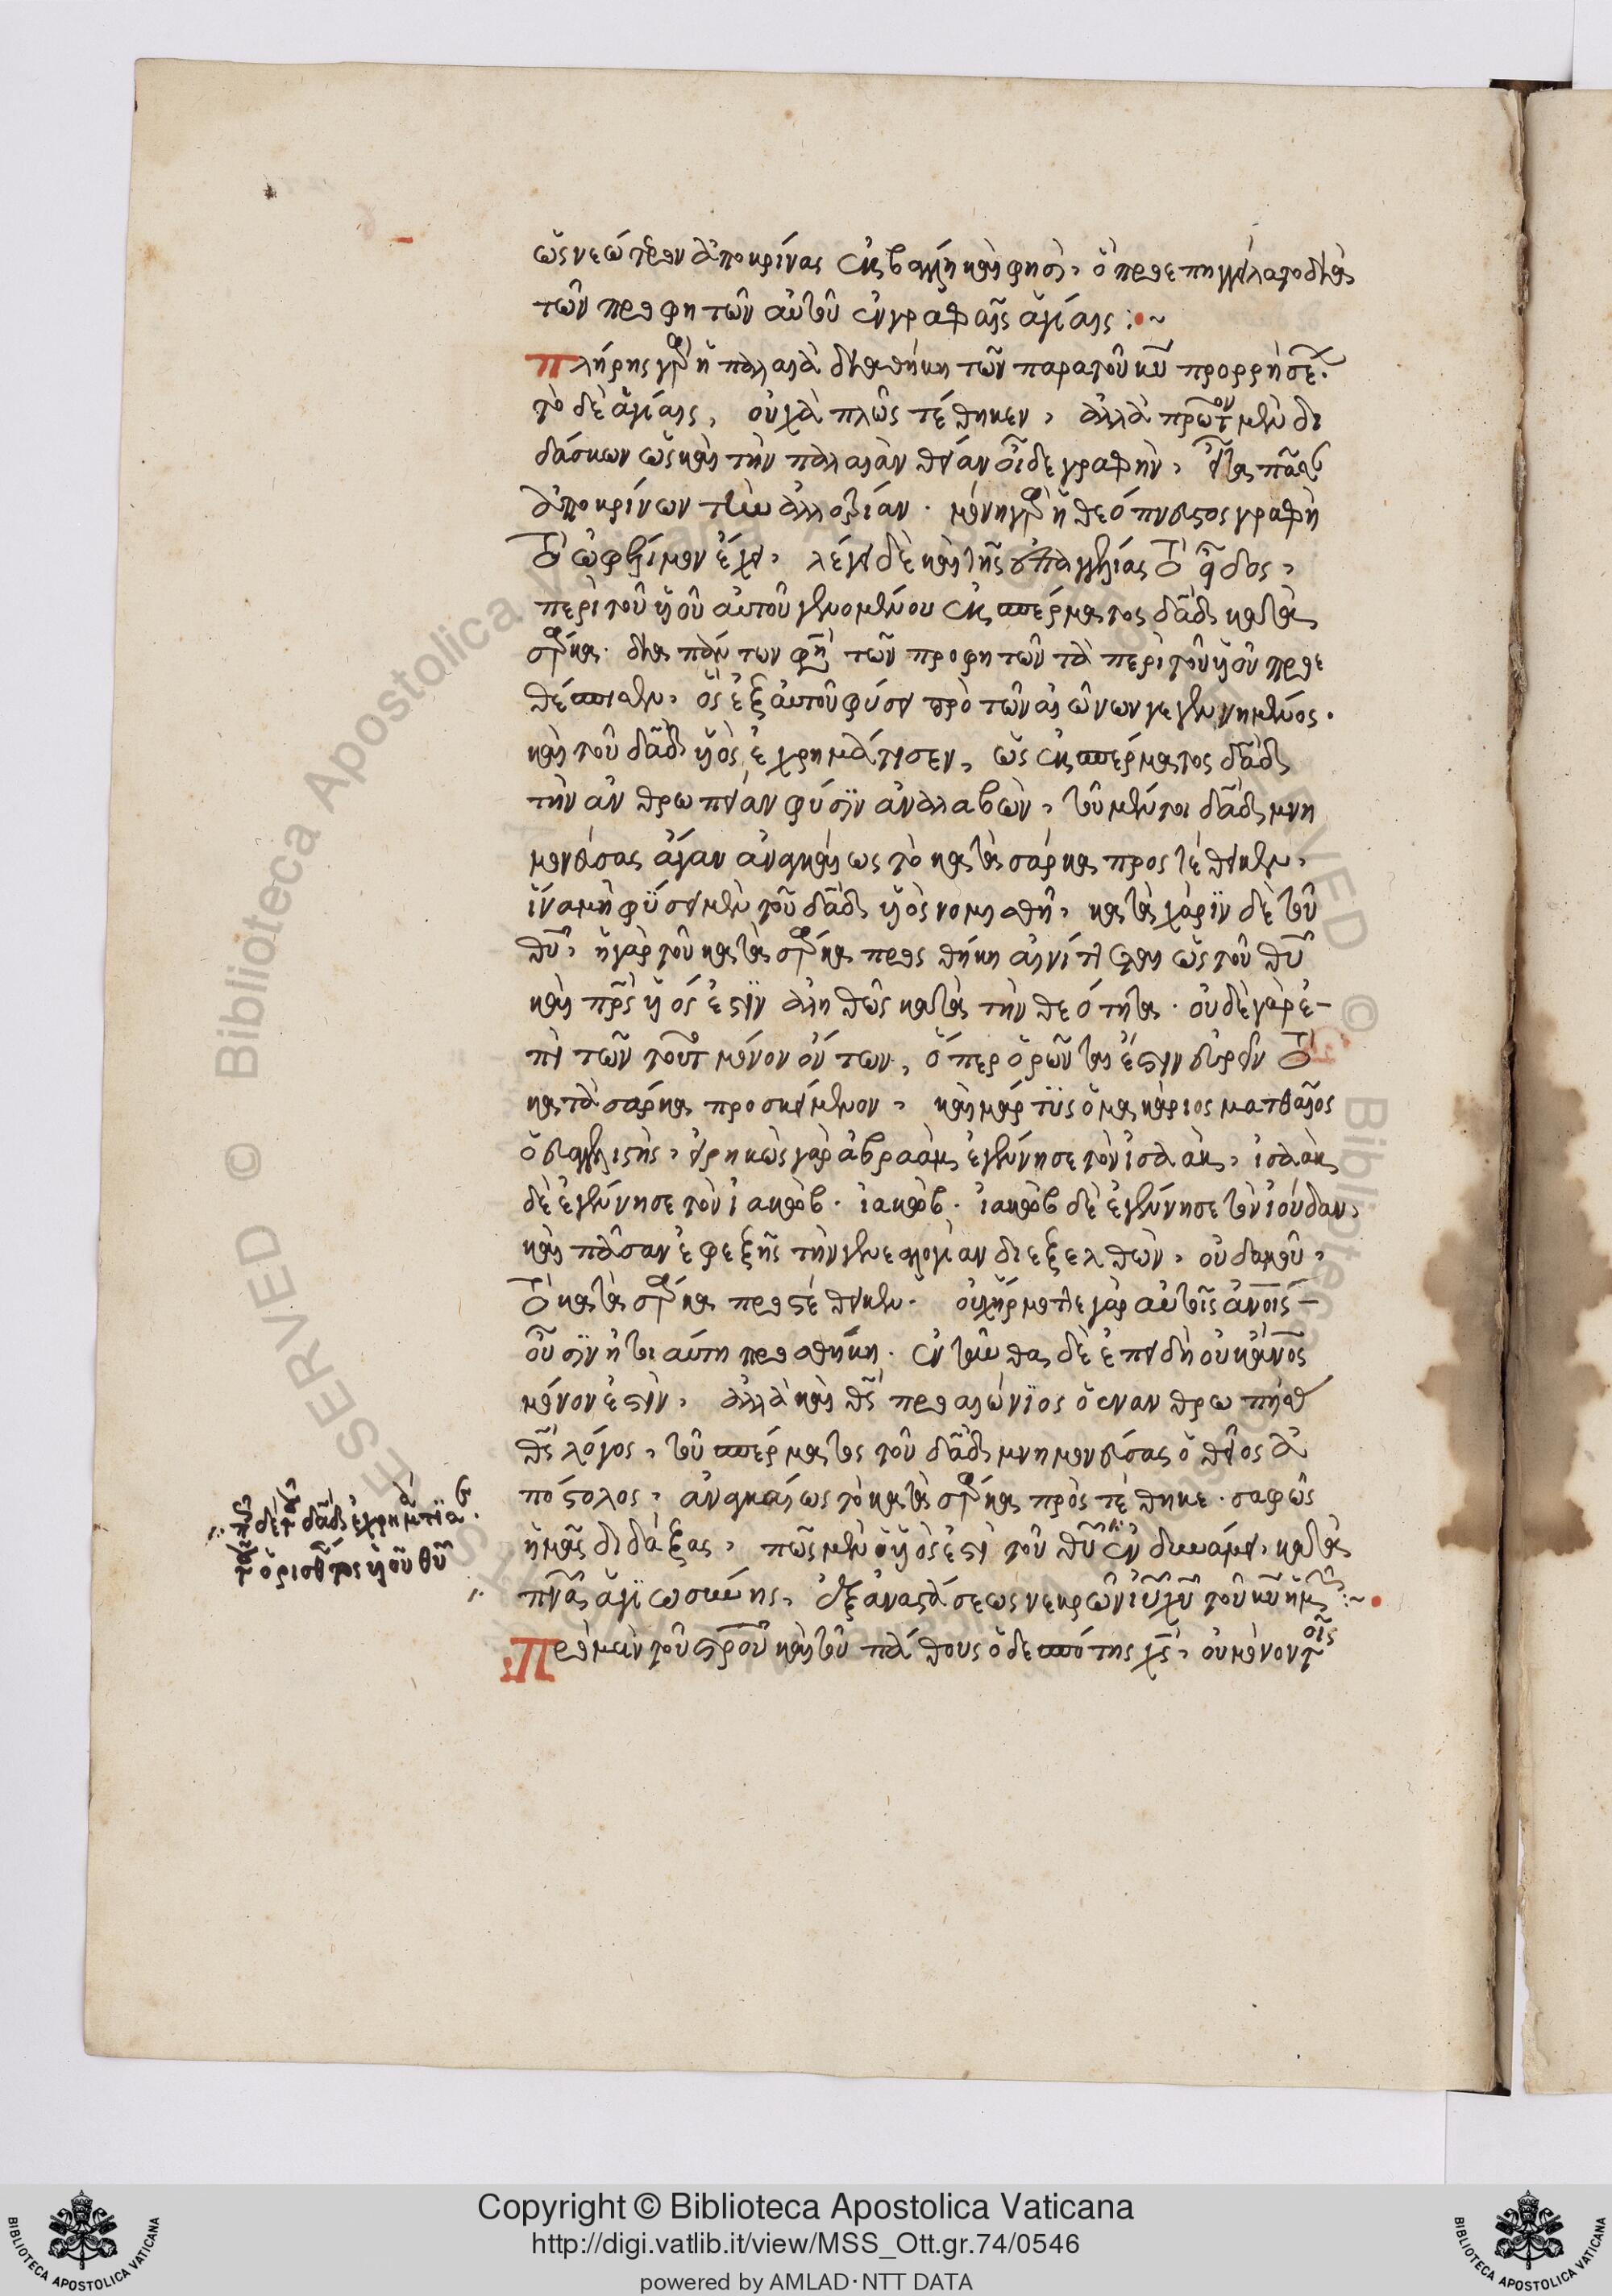 ὡς νεώτερον ἀποκρίνας ἐκβάλλῃ καὶ φησὶ, ὃ προεπηγγείλατο διὰ
τῶν προφητῶν αὐτοῦ ἐν γραφαῖς ἁγίαις :~
Πλήρης γὰρ ἡ παλαιὰ διαθήκη τῶν παρὰ τοῦ κυ προρρήσε.
τὸ δὲ ἁγίαις, οὐχ ἁπλῶς τέθηκεν, ἀλλὰ πρῶτον μὲν δι
δάσκων ὡς καὶ τὴν παλαιὰν θείαν οἶδε γραφὴν,
ἀποκρίνων τὴν ἀλλοτρίαν. μόνη γὰρ ἡ θεόπνευστος γραφὴ
τὸ ὠφέλιμον ἔχει, λέγει δὲ καὶ τῆς ἐπαγγελίας τὸ εἶδος,
περὶ τοῦ υἱοῦ αὐτοῦ γενομένου ἐκ σπέρματος δαδ κατὰ
σάρκα. διὰ πάντων φη τῶν προφητῶν τὰ περὶ τοῦ υἱοῦ προε
θέσπισεν, ὃς ἐξ αὐτοῦ φύσει πρὸ τῶν αἰώνων γεγεννημένος.
καὶ τοῦ δαδ υἱὸς ἐχρημάτισεν, ὡς ἐκ σπέρματος δαδ
τὴν ἀνθρωπείαν φύσιν ἀναλαβὼν, τοῦ μέντοι δαδ μνη
μονεύσας ἄγαν ἀναγκαίως τὸ κατὰ σάρκα προστέθεικεν,
ἵνα μὴ φύσει μὲν τοῦ δαδ υἱὸς νομισθῇ, κατὰ χάριν δὲ τοῦ
θυ, ἡ γὰρ τοῦ κατὰ σάρκα προσθήκη αἰνίττεται ὡς τοῦ θυ
καὶ πρς υἱός ἐστιν ἀληθῶς κατὰ τὴν θεότητα. οὐδὲ γὰρ ἐ-
πὶ τῶν τοῦτο μόνον ὄντων, ὅπερ ὁρῶνται ἔστιν εὑρεῖν τὸ
κατὰ σάρκα προσκείμενον, καὶ μάρτυς ὁ μακάριος ματθαῖος
ὁ εὐαγγελιστὴς, εἰρηκὼς γὰρ ἀβραὰμ ἐγέννησε τὸν ἰσαὰκ, ἰσαὰκ
δὲ ἐγέννησε τὸν ἰακώβ. ἰακώβ. ἰακὼβ δὲ ἐγέννησε τὸν ἰούδαν,
καὶ πᾶσαν ἐφεξῆς τὴν γενεαλογίαν διεξελθὼν, οὐδαμοῦ,
τὸ κατὰ σάρκα προστέθεικεν. οὐχ ἥρμοττε γὰρ αὐτοῖς ἀνοις
οὖσιν ἡ τοιαύτη προσθήκη. ἐνταῦθα δὲ ἐπειδὴ οὐκ ἀνος
μόνον ἐστὶν, ἀλλὰ καὶ θς προαιώνιος ὁ ἐνανθρωπήσας
θς λόγος, τοῦ σπέρματος τοῦ δαδ μνημονεύσας ὁ θεῖος ἀ
πόστολος, ἀναγκαίως τὸ κατὰ σάρκα προστέθηκε. σαφῶς
ἡμᾶς διδάξας, πῶς μὲν ὁ υἱὸς ἐστὶ τοῦ θυ ἐν δυνάμει, κατὰ
πνα ἁγιωσύνης, ἐξ ἀναστάσεως νεκρῶν ιυ χυ τοῦ κυ ἡμῶν :~
Πρὸ μὲν τοῦ στρου καὶ τοῦ πάθους ὁ δεσπότης χς, οὐ μόνον τοῖς
δαδ ἐχρημάτισε
τοῦ ὁρισθέντος υἱοῦ θυ
Copyright © Biblioteca Apostolica Vaticana
http://digi.vatlib.it/view/MSS_Ott.gr.74/0546
powered by AMLAD·NTT DATA